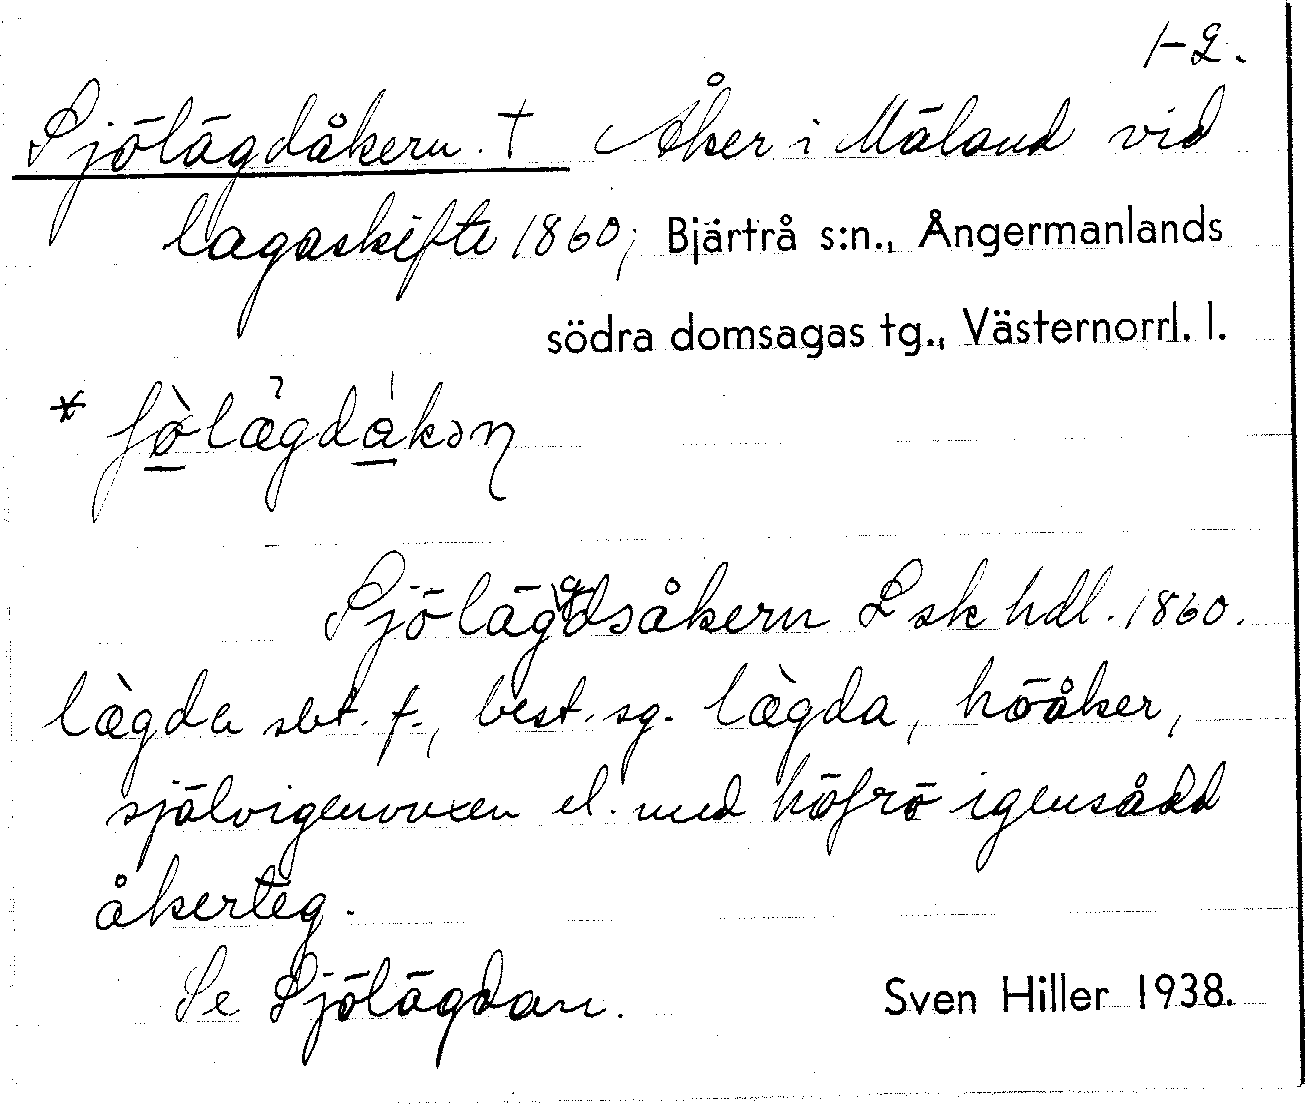 1-2.
Sjölägdåkern. † Åker i Mäland vid
lagaskifte 1860; Bjärtrå s:n., Ångermanlands
södra domsagas tg., Västernorrl. l.
Sjölägdsåkern L sk hdl. 1860.
lægda sbt. f., best. sg. lægda, höåker,
självigenvuxen el. med höfrö igensådd
åkerteg.
Se Sjölägdan. Sven Hiller 1938.